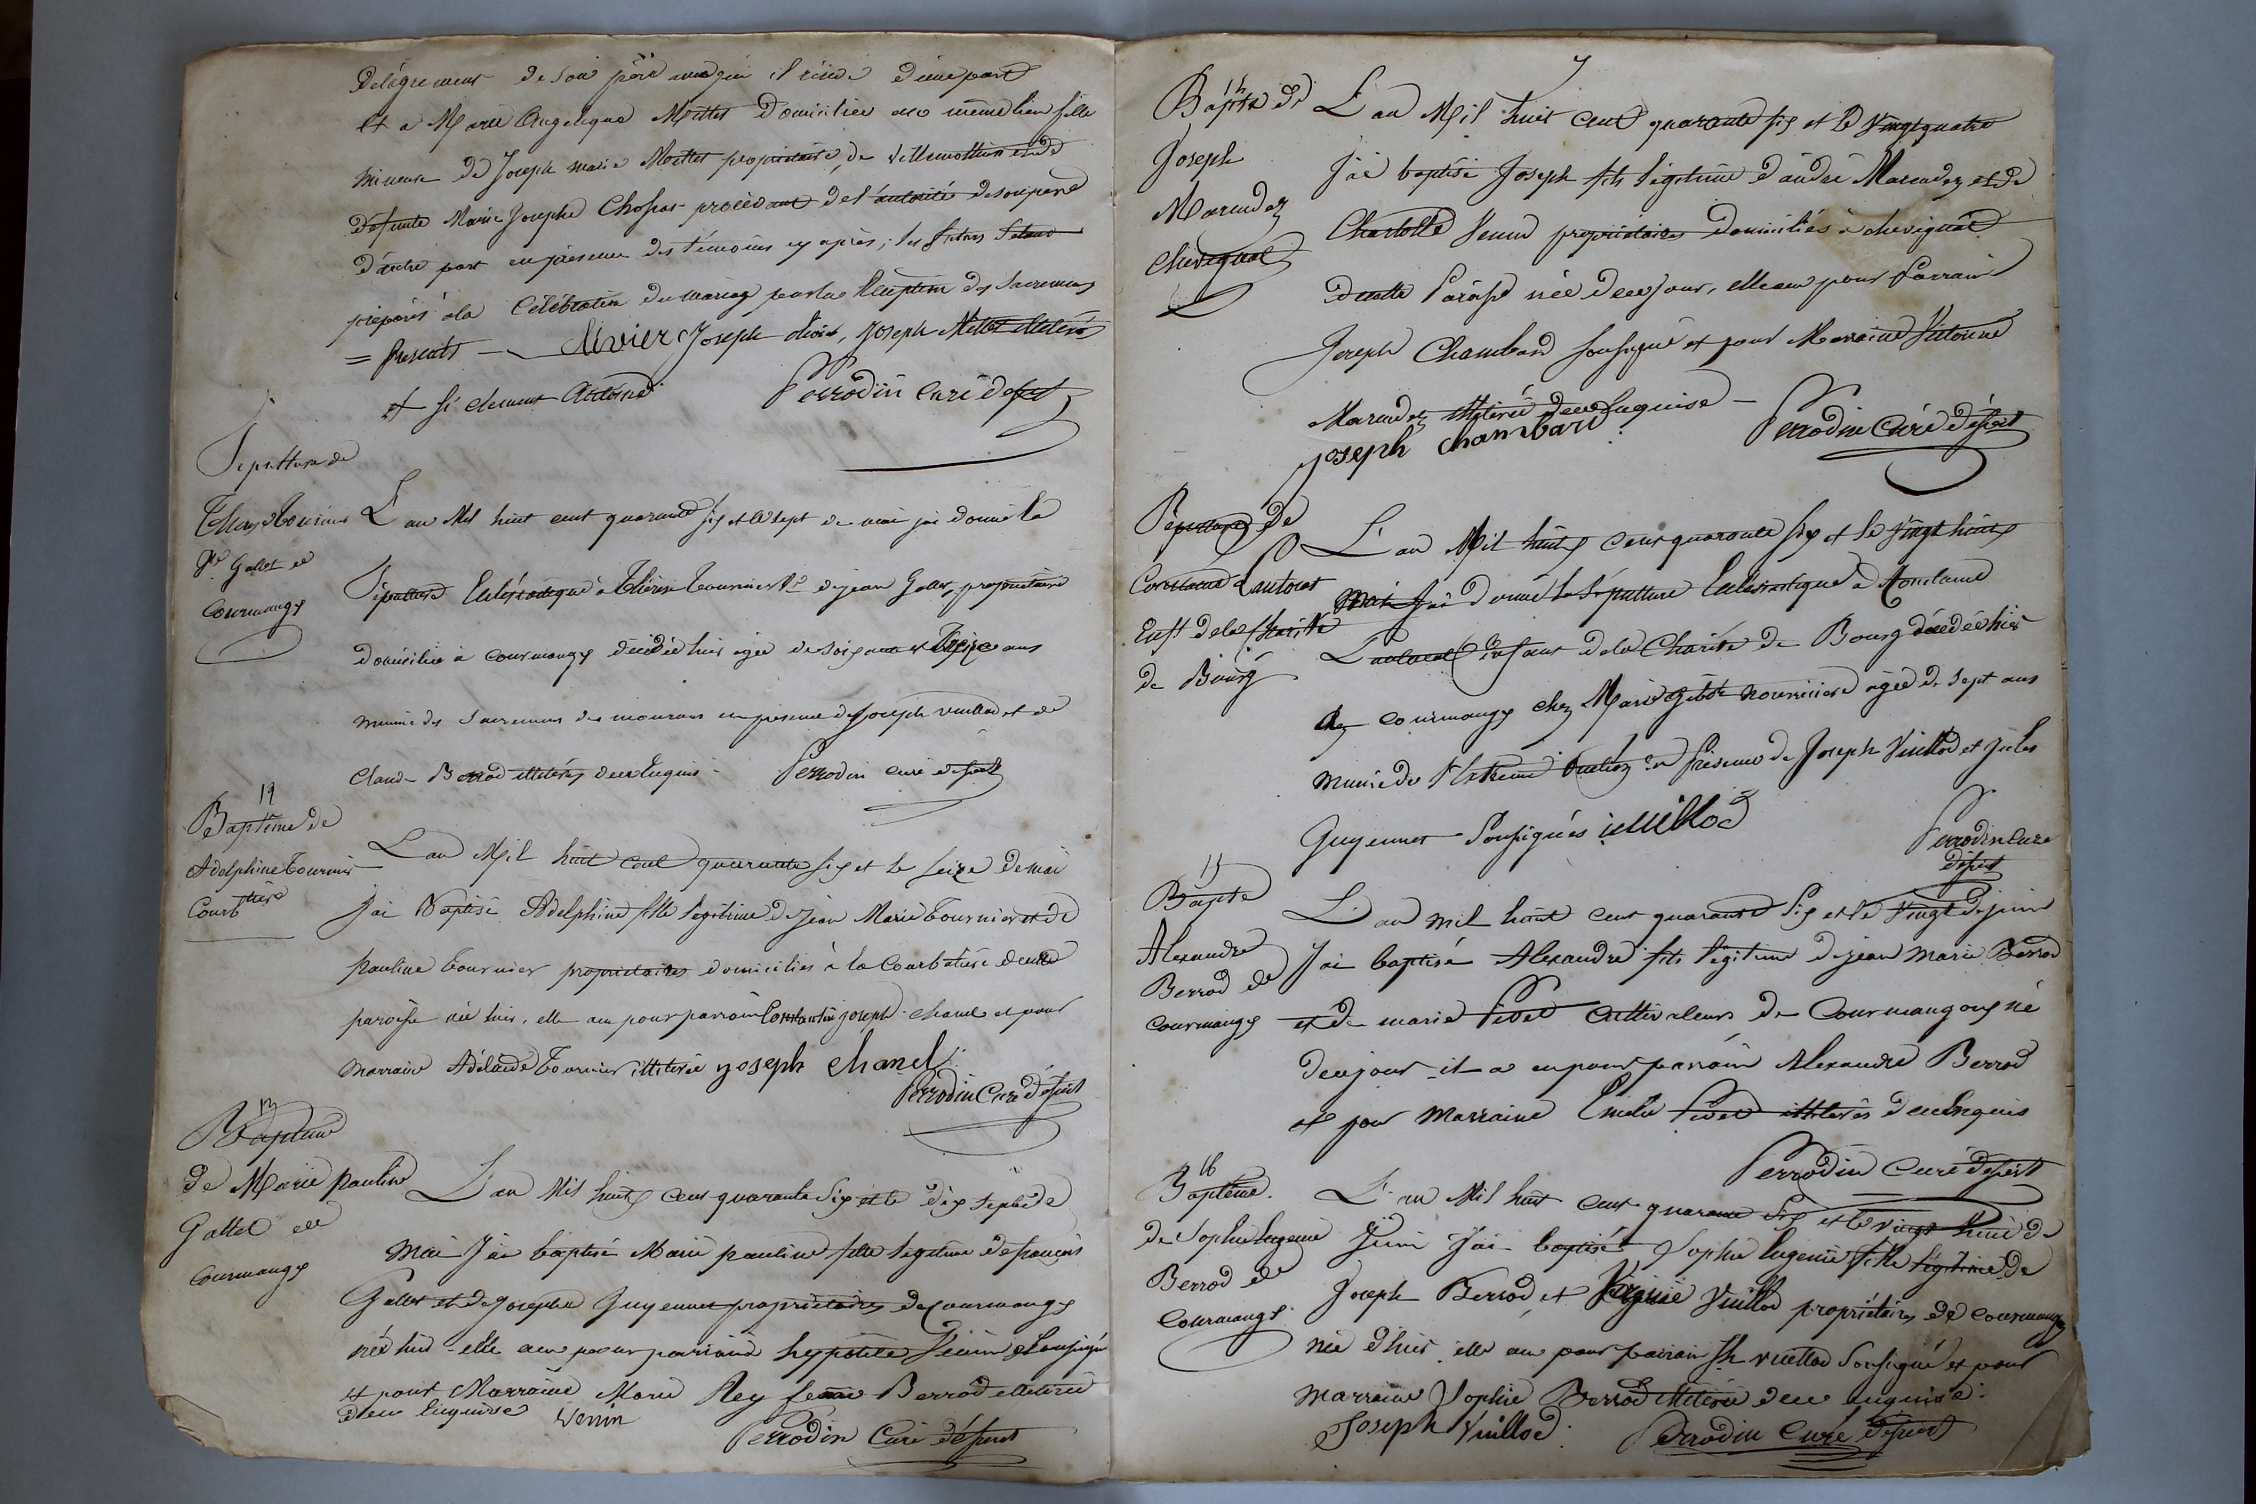 de l'agrement de son père avec qui il réside d'une part
et a Marie Angelique Mottet domiciliée au même lieu fille
mineure de Joseph marie Mottet propriétaire de Villemottier et de
defunte Marie Josephe procèdant de l'autorité de son père
d'autre part en présence des témoins cy après; les futurs
préparés a la Célébration du mariage par la Réception des Sacremens
= Presents — olivier Joseph olivier, Joseph Mottet illitérés
et clement Antoine Perrodin curé desert
Sepulture de
Tournier
Ve Gallet de
Courmangx
L'an Mil huit cent quarante six et le sept de mai j'ai donné la
Sépulture Ecclésiastique à Thérèse Tournier Ve de jean Gallet, propriétaire
domiciliée à Courmangx décédée hier agée de soixante et treize ans
munie des Sacremens des mourans en presence de Joseph vuillod et de
Claude Berrod illitérés de ce Enquis. Perrodin curé desert
12
Baptême de
Adelphine Tournier
Courbture
L'an Mil huit cent quarante six et le seize de mai
j'ai Baptisé Adelphine fille legitime de Jean Marie Tournier et de
pauline Tournier propriétaires domiciliés à la Courbature de cette
paroisse née hier, elle a eu pour parrain Constantin joseph chanel et pour
marraine Adélaïde Tournier illitérée joseph chanel
Perrodin Curé désert
13
Baptême
de Marie pauline
Gallet de
Courmangx
L'an Mil huit cent quarante Six et le dix sept de
Mai J'ai baptisé Marie pauline fille legitime de francois
Gallet et de Josephe Guyennet propriétaires de Courmangx
née hier elle a eu pour parrain hypolite Venin soussigné
et pour Marraine Marie Rey femme Berrod illitérée
de ce Enquise Venin Perrodin Curé désert
7
14
Bapte de
Joseph
Marendez
Chevignat
L'an Mil huit cent quarante six et le vingt quatre
J'ai baptisé Joseph fils legitime d'andré Marendez et de
Charlotte Venin propriétaires domiciliés à chevignat
de cette Paroisse née de ce jour, elle a eu pour Parrain
Joseph Chambard soussigné et pour Marraine
Marendez illitérée de ce Enquise — Perrodin Curé désert
joseph chambard
Sépulture de
Lautoret
Enft de la Charité
de Bourg
L'an Mil huit cent quarante six et le vingt huit
Mai J'ai donné la Sépulture Ecclésiastique à
enfant de la Charité de Bourg décédée hier
Courmangx chez Marie nourriciere agée de sept ans
munie de l'Extrême onction en Présence de Joseph Vuillod et Jules
Guyennet Soussignés vuillod Perrodin Curé
désert
15
Bapte
Alexandre
Berrod de
Courmangx
L'an mil huit cent quarante Six et le vingt de juin
J'ai baptisé Alexandre fils legitime de jean Marie Berrod
et de marie Pidet cultivateurs de Courmangoux né
de ce jour il a eu pour parrain Alexandre Berrod
et pour Marraine Emelie Pidet illitérés de ce Enquis
Perrodin Curé desert
16
Baptême
de Sophie Eugenie
Berrod de
Courmangx
L'an Mil huit cent quarante six et le vingt huit de
Juin J'ai baptisé Sophie Eugenie fille légitime de
Joseph Berrod et Virginie Vuillod propriétaires de Courmangx
née d'hier elle a eu pour parrain Jh vuillod Soussigné et pour
marraine Sophie Berrod illitérée de ce enquise.
Joseph Vuillod Perrodin Curé desert